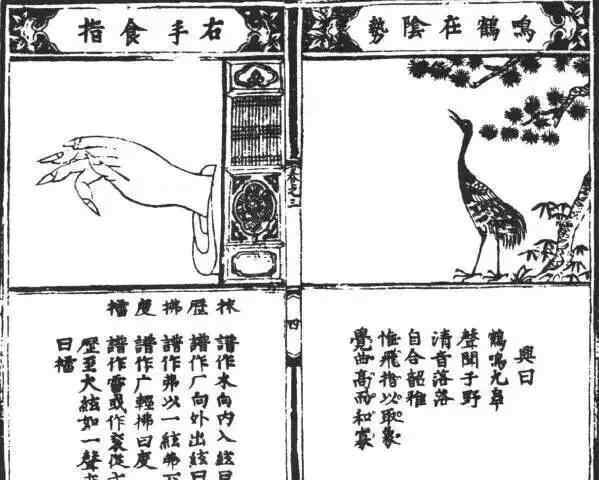 鳴鶴在陰勢
興曰
鶴鳴九皐
聲聞于野
清音落落
自合韶雅
惟飛指以取象
覺曲高而和寡
卷之三
四
右手食指
抹歷拂度擂
譜作木向内入絃曰
譜作厂向外出絃曰
譜作弗以一絃弗下
譜作广輕拂曰度
譜作雷或作裂從
歷至大絃如一聲
曰擂